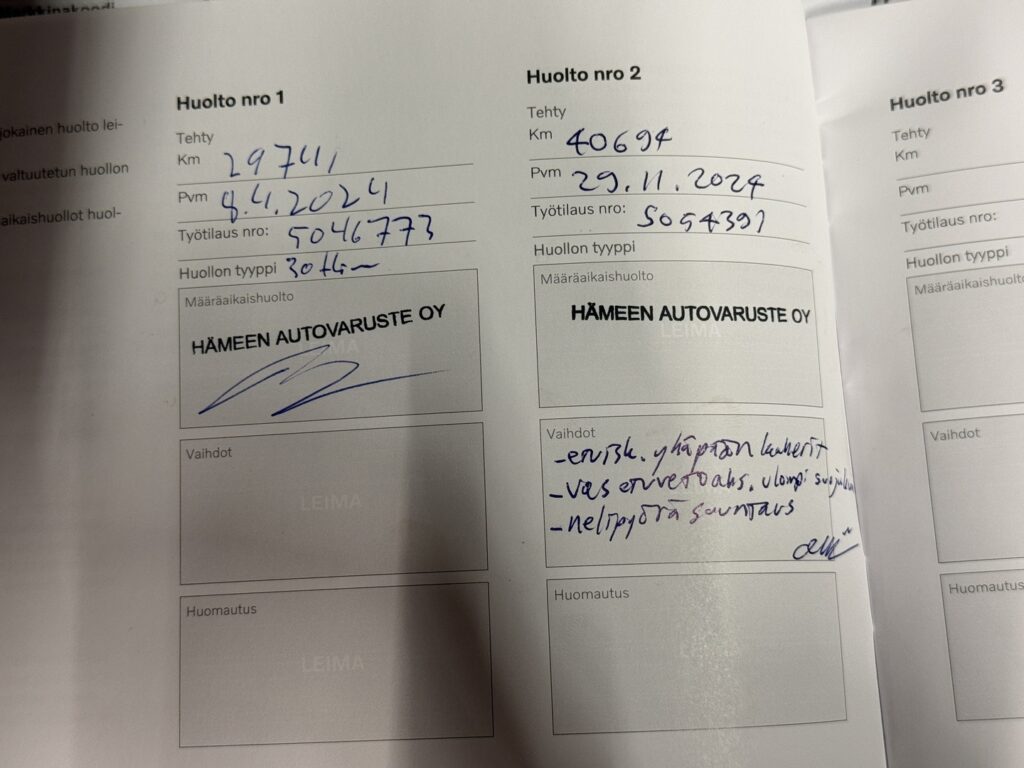 jokainen huolto lei-
valtuutetun huollon
aikaishuollot huol-
Huolto nro 1
Tehty
Km 29741
Pvm 8.4.2024
Työtilaus nro: 5046773
Huollon tyyppi
Määräaikaishuolto
HÄMEEN AUTOVARUSTE OY
Vaihdot
LEIMA
Huomautus
LEIMA
Huolto nro 2
Tehty
Km 40694
Pvm 29.11.2024
Työtilaus nro: 5054391
Huollon tyyppi
Määräaikaishuolto
HÄMEEN AUTOVARUSTE OY
LEIMA
Vaihdot
- etuisk. yläpään kumerit
- vas etuvetoaks. ulompi
- nelipyörä suuntaus
Huomautus
Huolto nro 3
Tehty
Km
Pvm
Työtilaus nro:
Huollon tyyppi
Määräaikaishuolto
Vaihdot
Huomautus